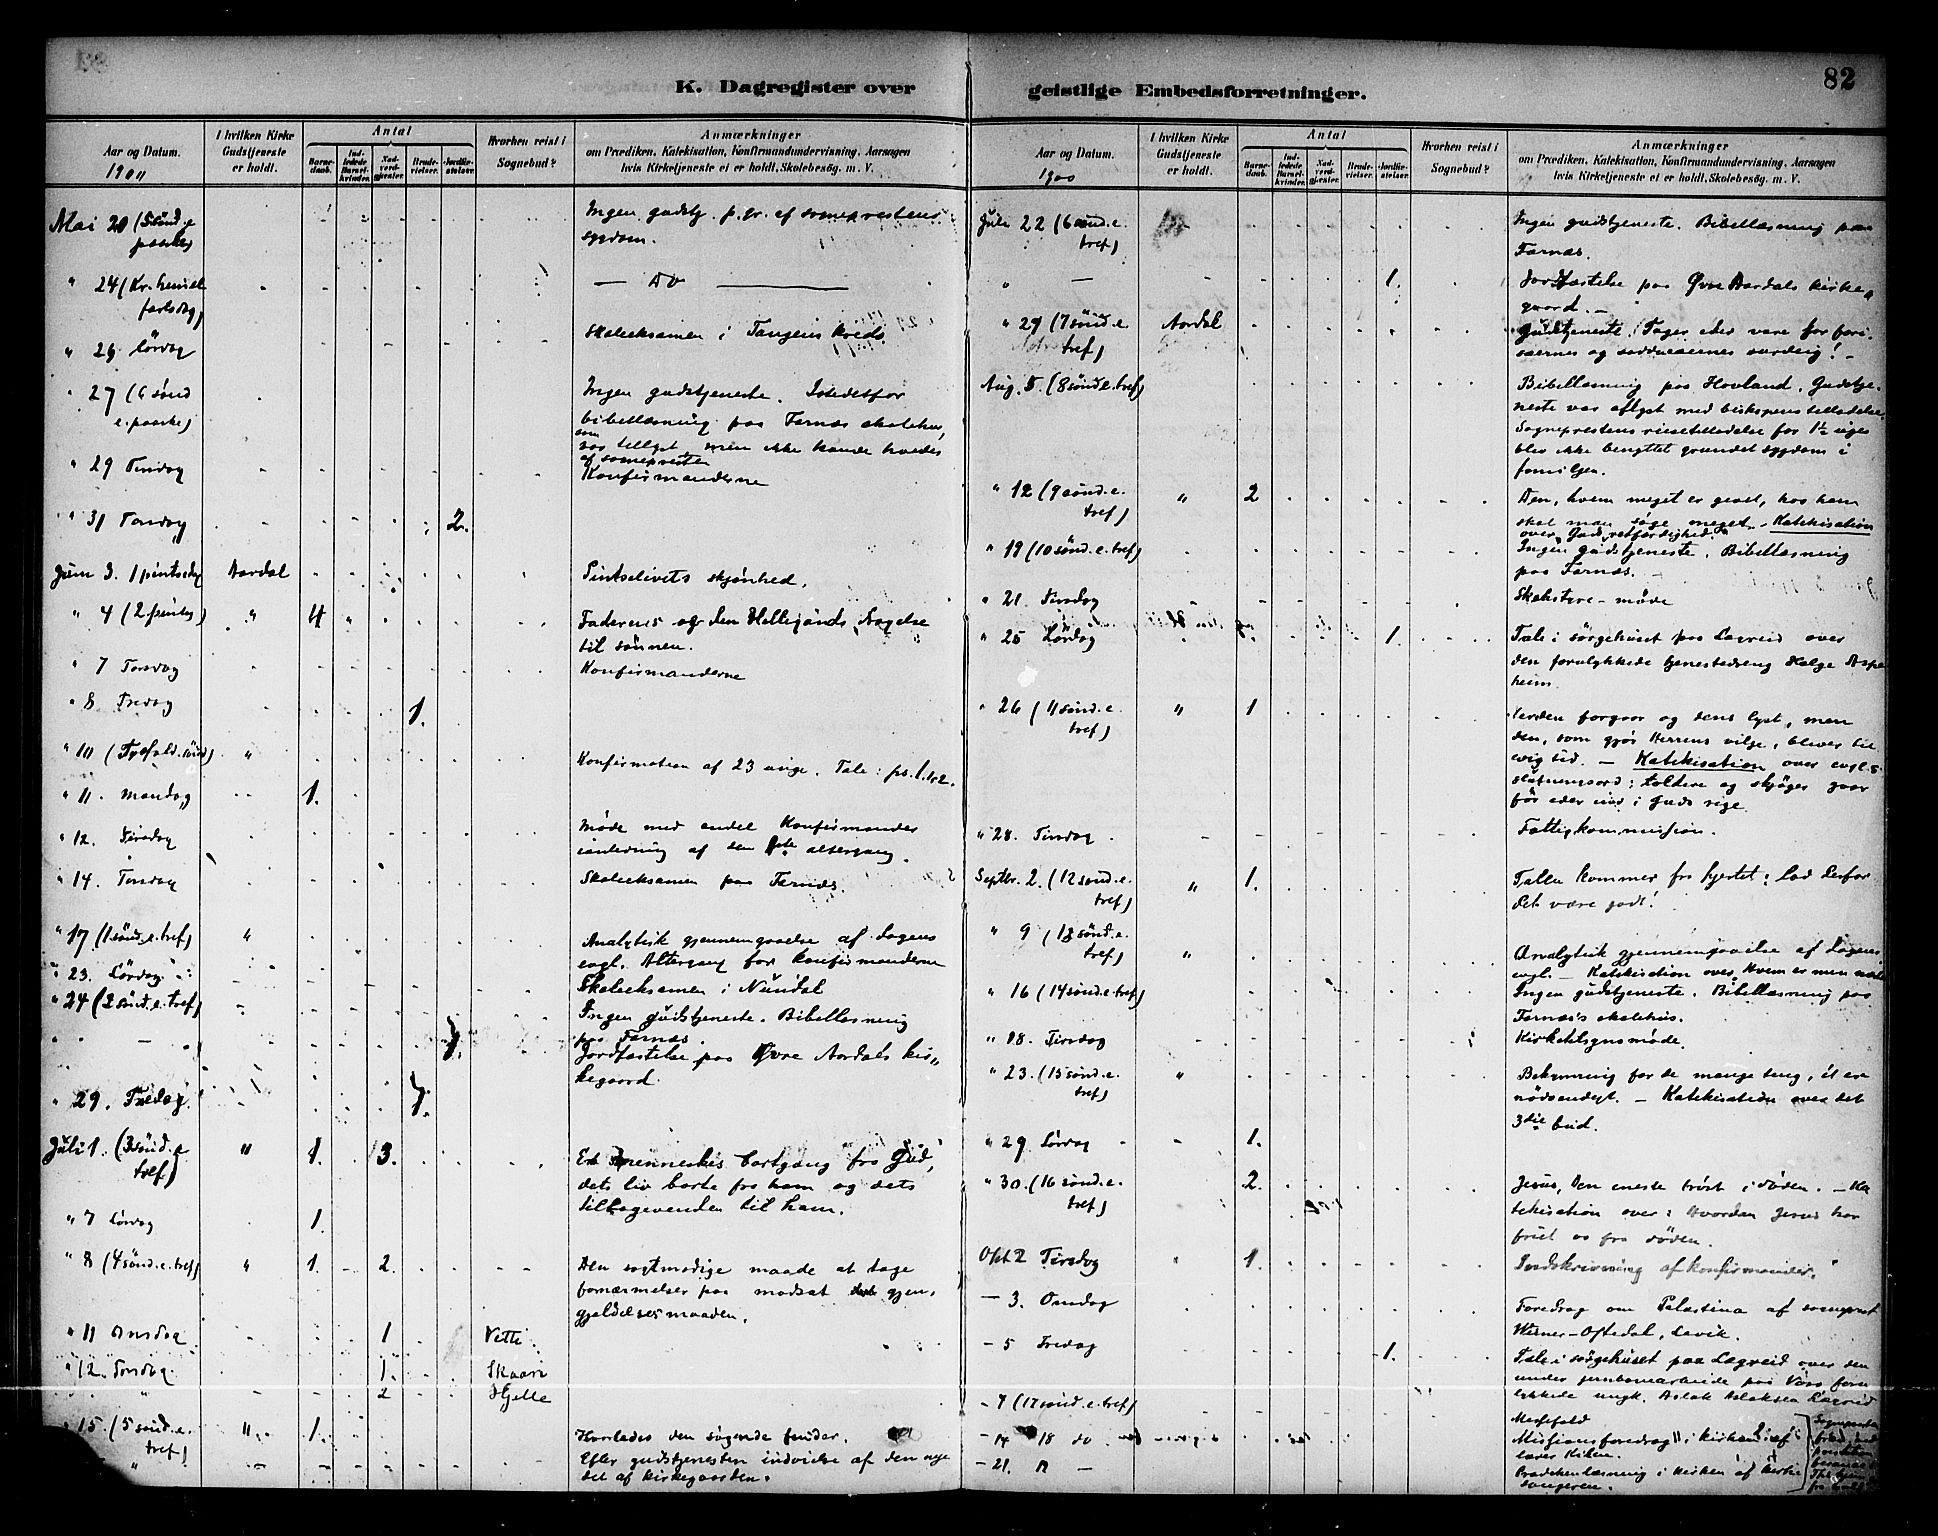 82
K. Dagregister over
geistlige Embedsforretninger.
Aar og Datum.
1900
I hvilken Kirke Gudstjeneste er holdt.
Antal
Barne-daab.
Ind-ledede Barsel-kvinder.
Nad-verd-gjester.
Brude-vielser.
Jordfæ-stelser.
Hvorhen reist i Sognebud?
Anmærkninger
om Prædiken, Katekisation, Konfirmandundervisning, Aarsagen
hvis Kirketjeneste ei er holdt, Skolebesøg. m. V.
Mai 20 (5 sönd. e. paaske) Ingen gudstj. p. gr. af sogneprestens
sygdom.
" 24 (Kr. himmelfartsdag) — do —
" 26 Lördag Skoleeksamen i Tangens kreds.
" 27 (6 sönd e. paaske) Ingen gudstjeneste. Istedetfor
bibellæsning paa Farnæs skolehus,
som var tillyst men ikke kunde holdes
af sognepresten
" 29 Tirsdag Konfirmanderne
" 31 Torsdag 2.
Juni 3. 1 pintsedag Aardal Pintselivets skjønhed.
" 4 (2 pintsd) " 4 Faderens og den Helligaands dragelse
til sønnen.
" 7 Torsdag Konfirmanderne
" 8 Fredag 1.
" 10 (Trefold. sönd) " Konfirmation af 23 unge. Tale: ps. 1. 1-2.
" 11. Mandag 1.
" 12. Tirsdag Møde med endel Konfirmander
i anledning af den 1ste altergang.
" 14. Torsdag Skoleeksamen paa Farnæs.
" 17 (1 sönd. e. tref) " Analytisk gjennemgaaelse af dagens
evgl. Altergang for konfirmanderne
" 23. Lördag Skoleeksamen i Nundal
" 24 (2 sönd. e. tref) Ingen gudstjeneste. Bibellæsning
paa Farnæs.
" — 1. Jordfæstelse paa Øvre Aardals kir-
kegaard.
" 29. Fredag 1.
Juli 1. (3 sönd. e. tref) " 1. 3. Et menneskes bortgang fra Gud,
dets liv borte fra ham og dets
tilbagevenden til ham.
" 7 Lördag 1.
" 8 (4 sönd. e. tref) " 1. 2. Den sagtmodige maade at tage
fornærmelser paa modsat gjen-
gjældelsesmaaden.
" 11 Onsdag 1 Vetti
" 12. Torsdag 1. Skaari
" 2 Hjelle
" 15 (5 sönd. e. tref) " 1. Hvorledes den søgende finder.
" Efter gudstjenesten indvielse af den nye
del af kirkegaarden.
Aar og Datum.
1900
I hvilken Kirke Gudstjeneste er holdt.
Antal
Barne-daab.
Ind-ledede Barsel-kvinder.
Nad-verd-gjester.
Brude-vielser.
Jordfæ-stelser.
Hvorhen reist i Sognebud?
Anmærkninger
om Prædiken, Katekisation, Konfirmandundervisning, Aarsagen
hvis Kirketjeneste ei er holdt, Skolebesøg. m. V.
Juli 22 (6 sönd. e. tref) Ingen gudstjeneste. Bibellæsning paa
Farnæs.
" — 1. Jordfæstelse paa Øvre Aardals kirke-
gaard. —
" 29 (7 sönd. e. tref) Aardal Gudstjeneste. Tager eder vare for fari-
sæernes og saddukæernes surdeig! —
Aug. 5 (8 sönd. e. tref) Bibellæsning paa Hovland. Gudstje-
neste var aflyst med biskopens tilladelse.
Sogneprestens reisetilladelse for 1½ uge
blev ikke benyttet grundet sygdom i
familjen.
" 12 (9 sönd. e. tref) " 2 Den, hvem meget er givet, hos ham
skal man søge meget. — Katekisation
over Guds retfærdighed
" 19 (10 sönd. e. tref) Ingen gudstjeneste. Bibellæsning
paa Farnæs. —
" 21. Tirsdag Skolestyre-møde
" 25 Lördag 1. Tale i sørgehuset paa Lægreid over
den forulykkede tjenestedreng Helge Aspe-
heim.
" 26 (11 sönd. e. tref) " 1 Verden forgaar og dens lyst, men
den, som gjør Herrens vilje, bliver til
evig tid. — Katekisation over evgl.s
slutningsord: toldere og skjøger gaar
før eder ind i Guds rige
" 28. Tirsdag Fattigkommission.
Septbr. 2. (12 sönd. e. tref) " 1. Talen kommer fra hjertet: lad derfor
det være godt!
" 9 (13 sönd. e. tref) " Analytisk gjennemgaaelse af dagens
evgl. — Katekisation over Hvem er min næste
" 16 (14 sönd. e. tref) Ingen gudstjeneste. Bibellæsning paa
Farnæs's skolehus.
" 18. Tirsdag Kirketilsynsmøde.
" 23. (15 sönd. e. tref) " Bekymring for de mange ting, ét er
nödvendigt. — Katekisation over det
3die bud.
" 29 Lördag 1.
" 30. (16 sönd. e. tref) 2. Jesus, den eneste trøst i døden. — Ka-
tekisation over: Hvordan Jesus har
friet os fra døden.
Okt 2 Tirsdag " 1. Indskrivning af konfirmander.
— 3. Onsdag Foredrag om Palæstina af sogneprest
Werner-Oftedal, Lavik.
— 5 Fredag 1. Tale i sørgehuset paa Lægreid over den
under jernbanearbeide paa Voss foru-
lykkede ungk. Aslak Aslaksen Lægreid
— 7 (17 sönd. e. tref) Messefald
— 14 18 do Missionsforedrag i kirken af
lærer
— 21. Prædikenlæsning i kirken af kirke-
sangeren.